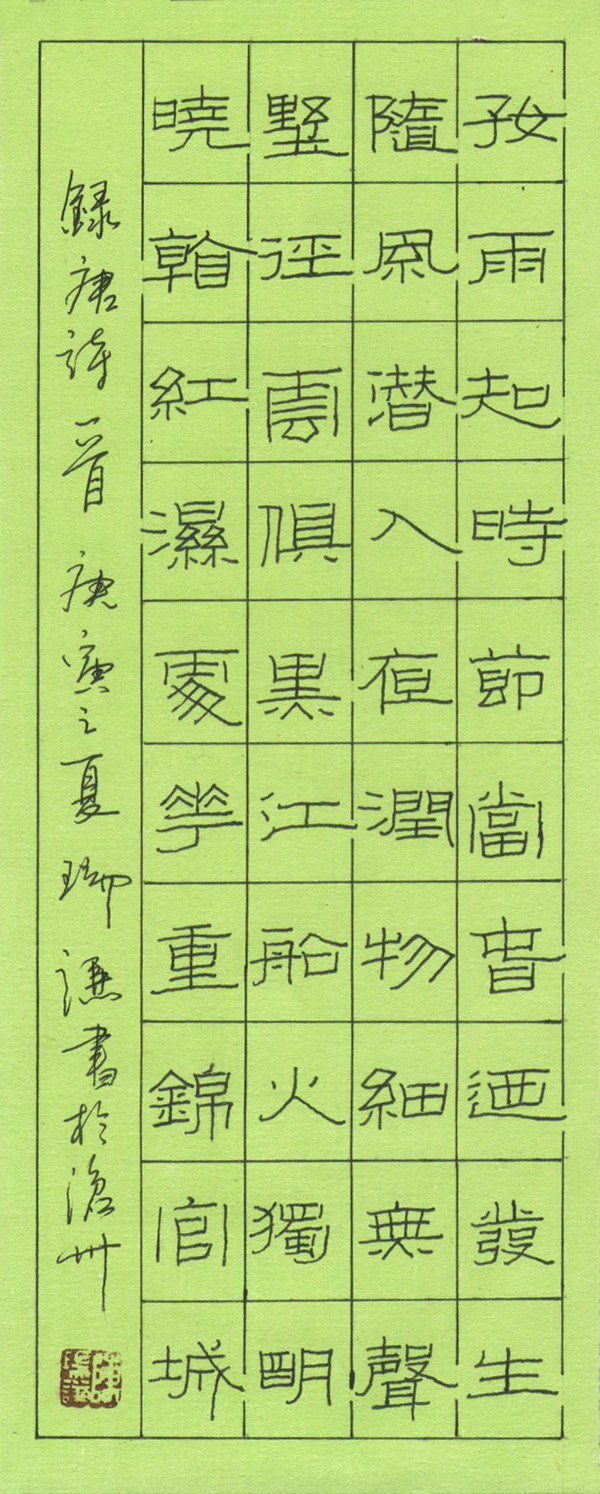 好雨起時節當皆迺發生
隨風潛入夜潤物細無聲
墅徑雲俱黑江船火獨明
曉翰紅濕處華重錦官城
錄唐詩一首庚寅之夏瑞謙書於滄州